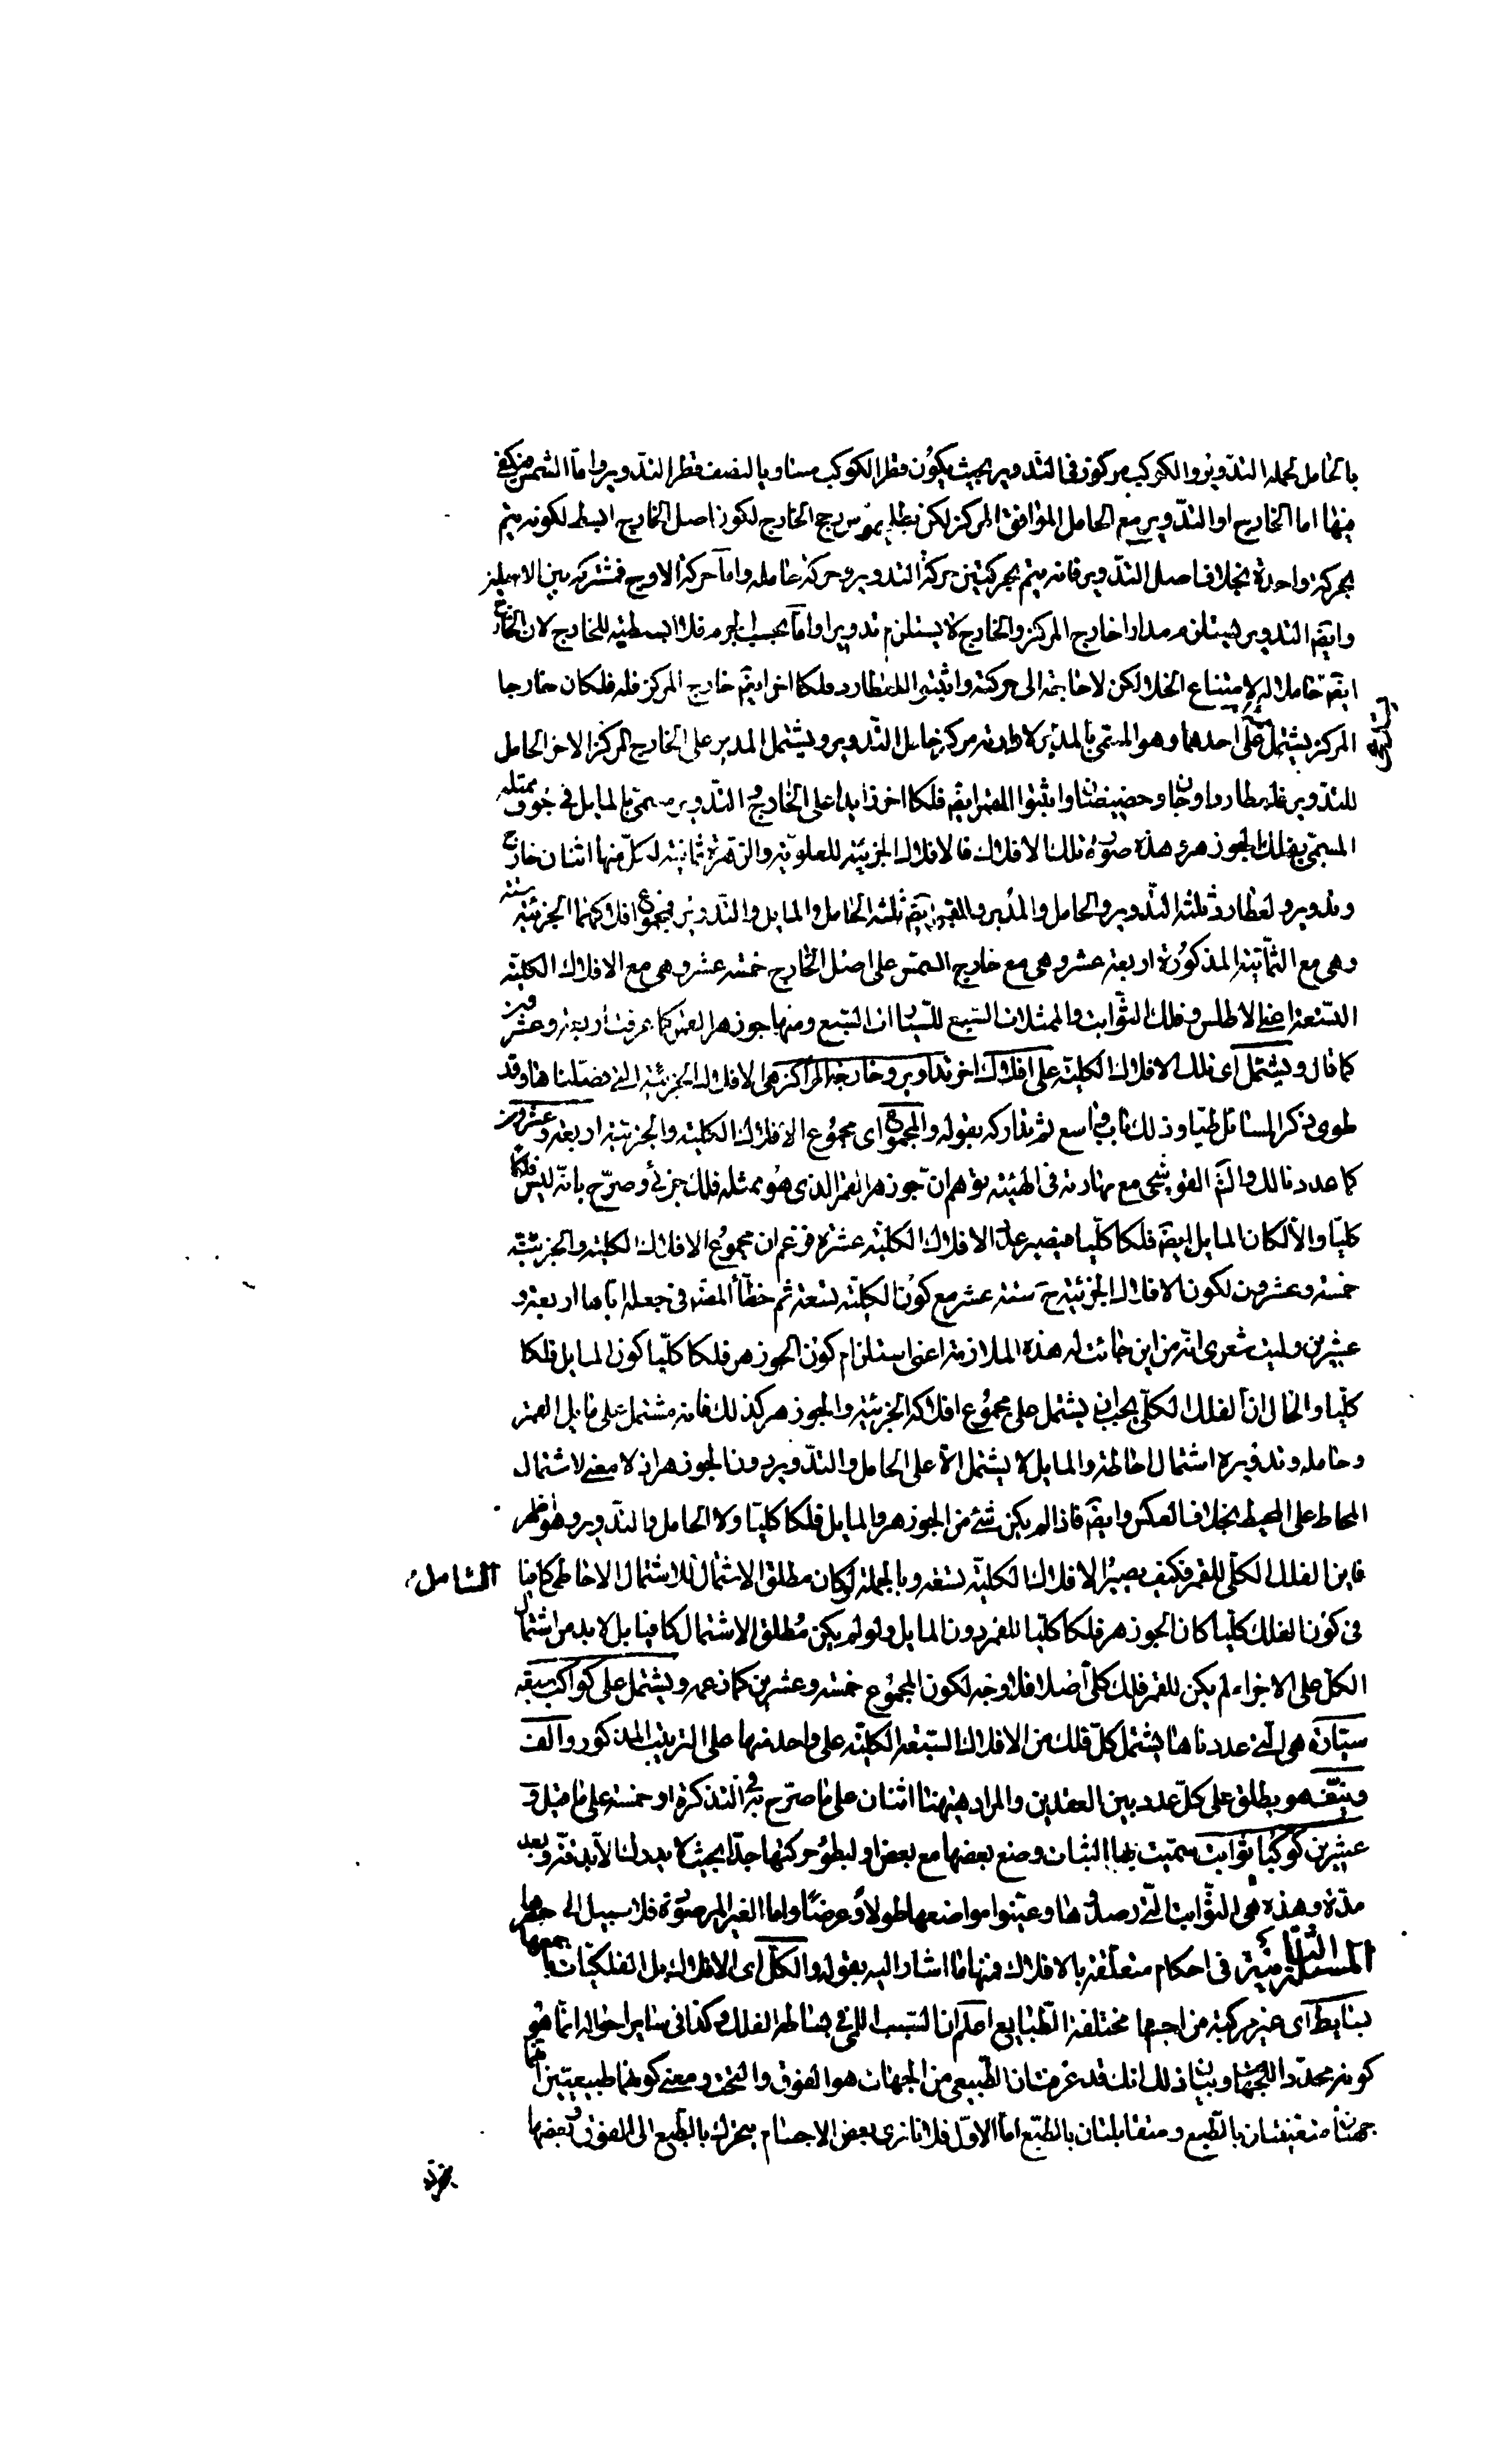 بالحامل لحمله التدوير والكوكب مركوز في التدوير بحيث يكون قطر الكوكب مساويا لنصف قطر التدوير واما الشمس فيكفي
فيها اما الخارج او التدوير مع الحامل الموافق المركز لكن بطلميوس رجح الخارج لكون اصل الخارج ابسط لكونه يتم
بحركة واحدة بخلاف اصل التدوير فانه يتم بحركتين حركة التدوير وحركة حامله واما حركة الاوج فمشتركة بين الاصلين
وايضا التدوير يستلزم مدارا خارج المركز والخارج لا يستلزم تدويرا واما بحسب الجرم فلا ابسطية للخارج لان الخارج
ايضا حاملا له لامتناع الخلا لكن لا حاجة الى حركته واثبتوا لعطارد فلكا اخر ايضا خارج المركز فله فلكان خارجا
المركز يشتمل على احدهما وهو المسمى بالمدير لادارته مركز حامل التدوير ويشتمل المدير على الخارج المركز الاخر الحامل
للتدوير فلعطارد اوجان وحضيضان واثبتوا للقمر ايضا فلكا اخر زايدا على الخارج والتدوير يسمى بالمايل في جوف ممثله
المسمى بفلك الجوزهر وهذه صورة تلك الافلاك فالافلاك الجزئية للعلوية والزهرة ثمانية لكل منها اثنان خارج
وتدوير ولعطارد ثلثة التدوير والحامل والمدير وللقمر ايضا ثلثة الحامل والمايل والتدوير فمجموع افلاكهما الجزئية ستة
وهي مع الثمانية المذكورة اربعة عشر وهي مع خارج الشمس على اصل الخارج خمسة عشر وهي مع الافلاك الكلية
التسعة اعني الاطلس وفلك الثوابت والممثلات السبع للسيارات السبع ومنها جوزهر القمر كما عرفت اربعة وعشرون
كما قال ويشتمل اي تلك الافلاك الكلية على افلاك اخر تداوير وخارجة المراكز هي الافلاك الجزئية التي فصلناها وقد
طوى ذكر المسائل طيا وذلك باب واسع ثم تداركه بقوله والمجموع اي مجموع الافلاك الكلية والجزئية اربعة وعشرون
كما عددنا لك والشم القوشجي مع مهارته في الهيئة توهم ان جوزهر القمر الذي هو ممثله فلك جزئي وصرح بانه ليس فلكا
كليا والا لكان المايل ايضا فلكا كليا فيصير عدد الافلاك الكلية عشرة فزعم ان مجموع الافلاك الكلية والجزئية
خمسة وعشرون لكون الافلاك الجزئية ح ستة عشر مع كون الكلية تسعة ثم خطأ المصنف في جعله اياها اربعة و
عشرين وليت شعري انه من اين جائت له هذه الملازمة اعني استلزام كون الجوزهر فلكا كليا كون المايل فلكا
كليا والحال ان الفلك الكلي يجب ان يشتمل على مجموع افلاكه الجزئية والجوزهر كذلك فانه مشتمل على مايل القمر
وحامله وتدويره اشتمال احاطة والمايل لا يشتمل الا على الحامل والتدوير دون الجوزهر اذ لا معنى لاشتمال
المحاط على المحيط بخلاف العكس وايضا فاذا لم يكن شئ من الجوزهر والمايل فلكا كليا ولا الحامل والتدوير وهو ظاهر
فاين الفلك الكلي للقمر فكيف يصير الافلاك الكلية تسعة وبالجملة لو كان مطلق الاشتمال للاشتمال الاحاطي كافيا
الشامل
في كون الفلك كليا كان الجوزهر فلكا كليا للقمر دون المايل ولو لم يكن مطلق الاشتمال كافيا بل لا بد من اشتمال
الكل على الاجزاء لم يكن للقمر فلك كلي اصلا فلا وجه لكون المجموع خمسة وعشرين كما زعمه ويشتمل على كواكب سبعة
سيارة هي التي عددناها يشتمل كل فلك من الافلاك السبعة الكلية على واحد منها على الترتيب المذكور والف
ونيف هو يطلق على كل عدد بين العقدين والمراد هيهنا اثنان على ما صرح به في التذكرة او خمسة على ما قيل و
عشرين كوكبا ثوابت سميت بها لثبات وضع بعضها مع بعض او لبطؤ حركتها جدا بحيث لا يدرك الا بدقة وبعد
مدة وهذه هي الثوابت التي رصدوها وعينوا مواضعها طولا وعرضا واما الغير المرصودة فلا سبيل الى حصرها
المسئلة الثانية في احكام متعلقة بالافلاك فمنها ما اشار اليه بقوله والكل اي الافلاك بل الفلكيات باجمعها
بسايط اى غير مركبة من اجسام مختلفة الطبايع اعلم ان السبب اللمي في بساطة الفلك وكذا في ساير احواله انما هو
كونه محددا للجهات وبيان ذلك انك قد عرفت ان الطبيعي من الجهات هو الفوق والتحت ومعنى كونهما طبيعيتين انهما
جهتان متعينتان بالطبع ومتقابلتان بالطبع اما الاول فلانا نرى بعض الاجسام يتحرك بالطبع الى الفوق وبعضها